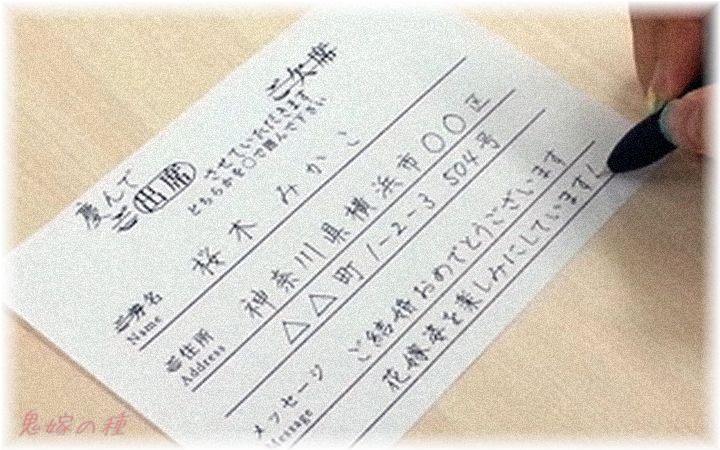 慶んで
ご出席
させていただきます
どちらかを○で囲んで下さい
ご欠席
ご芳名 桜木 みかこ
Name
ご住所 神奈川県横浜市〇〇区
Address △△町1-2-3 504号
メッセージ ご結婚おめでとうございます
Message 花嫁姿を楽しみにしています
鬼嫁の種